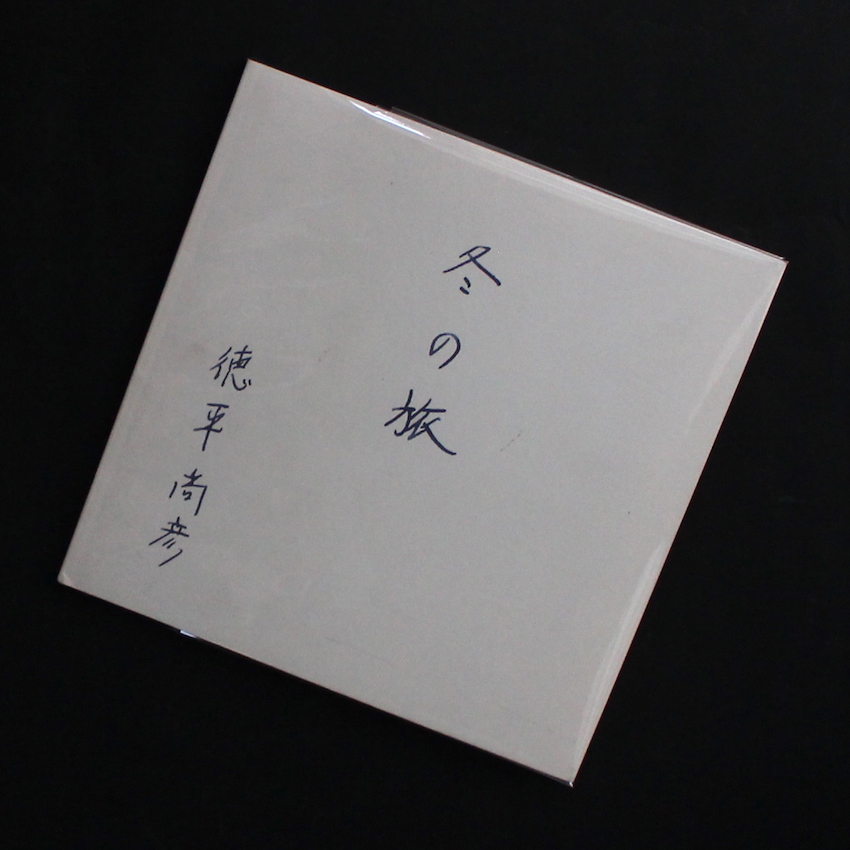 冬の旅
徳平尚彦